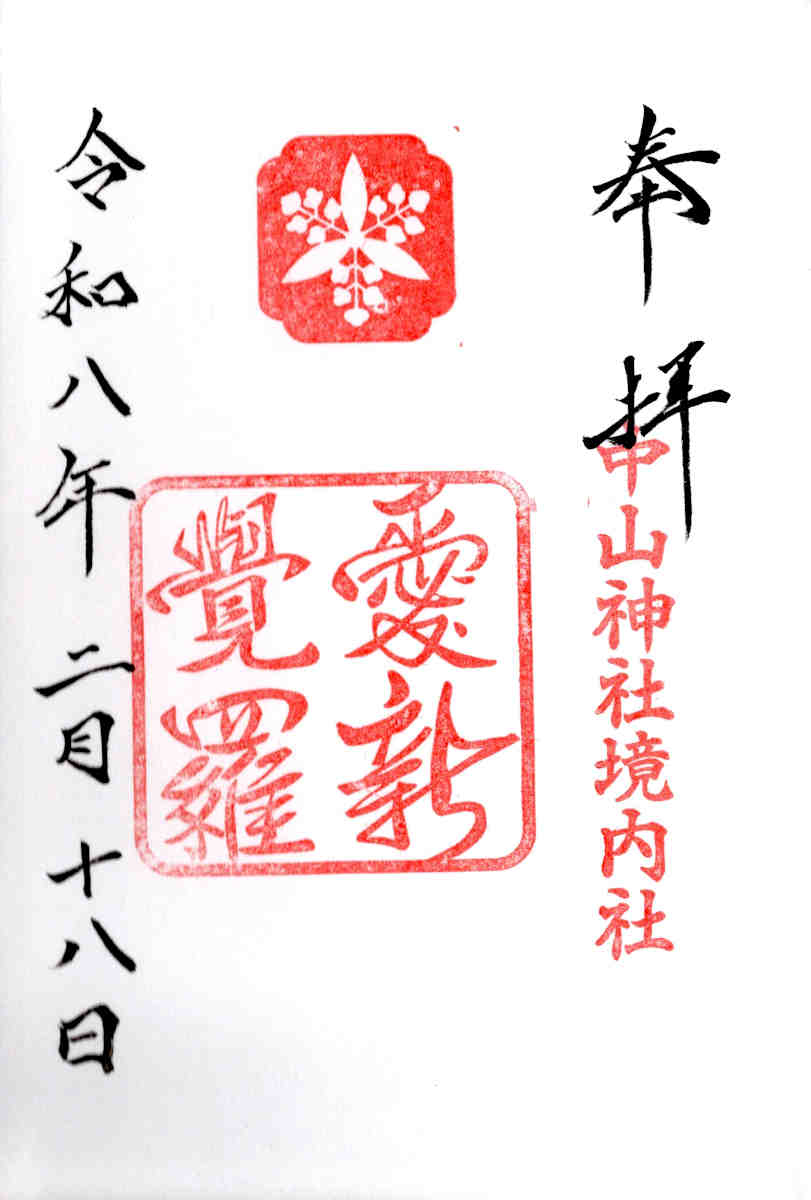 奉拝
中山神社境内社
愛新
覺羅
令和八年二月十八日